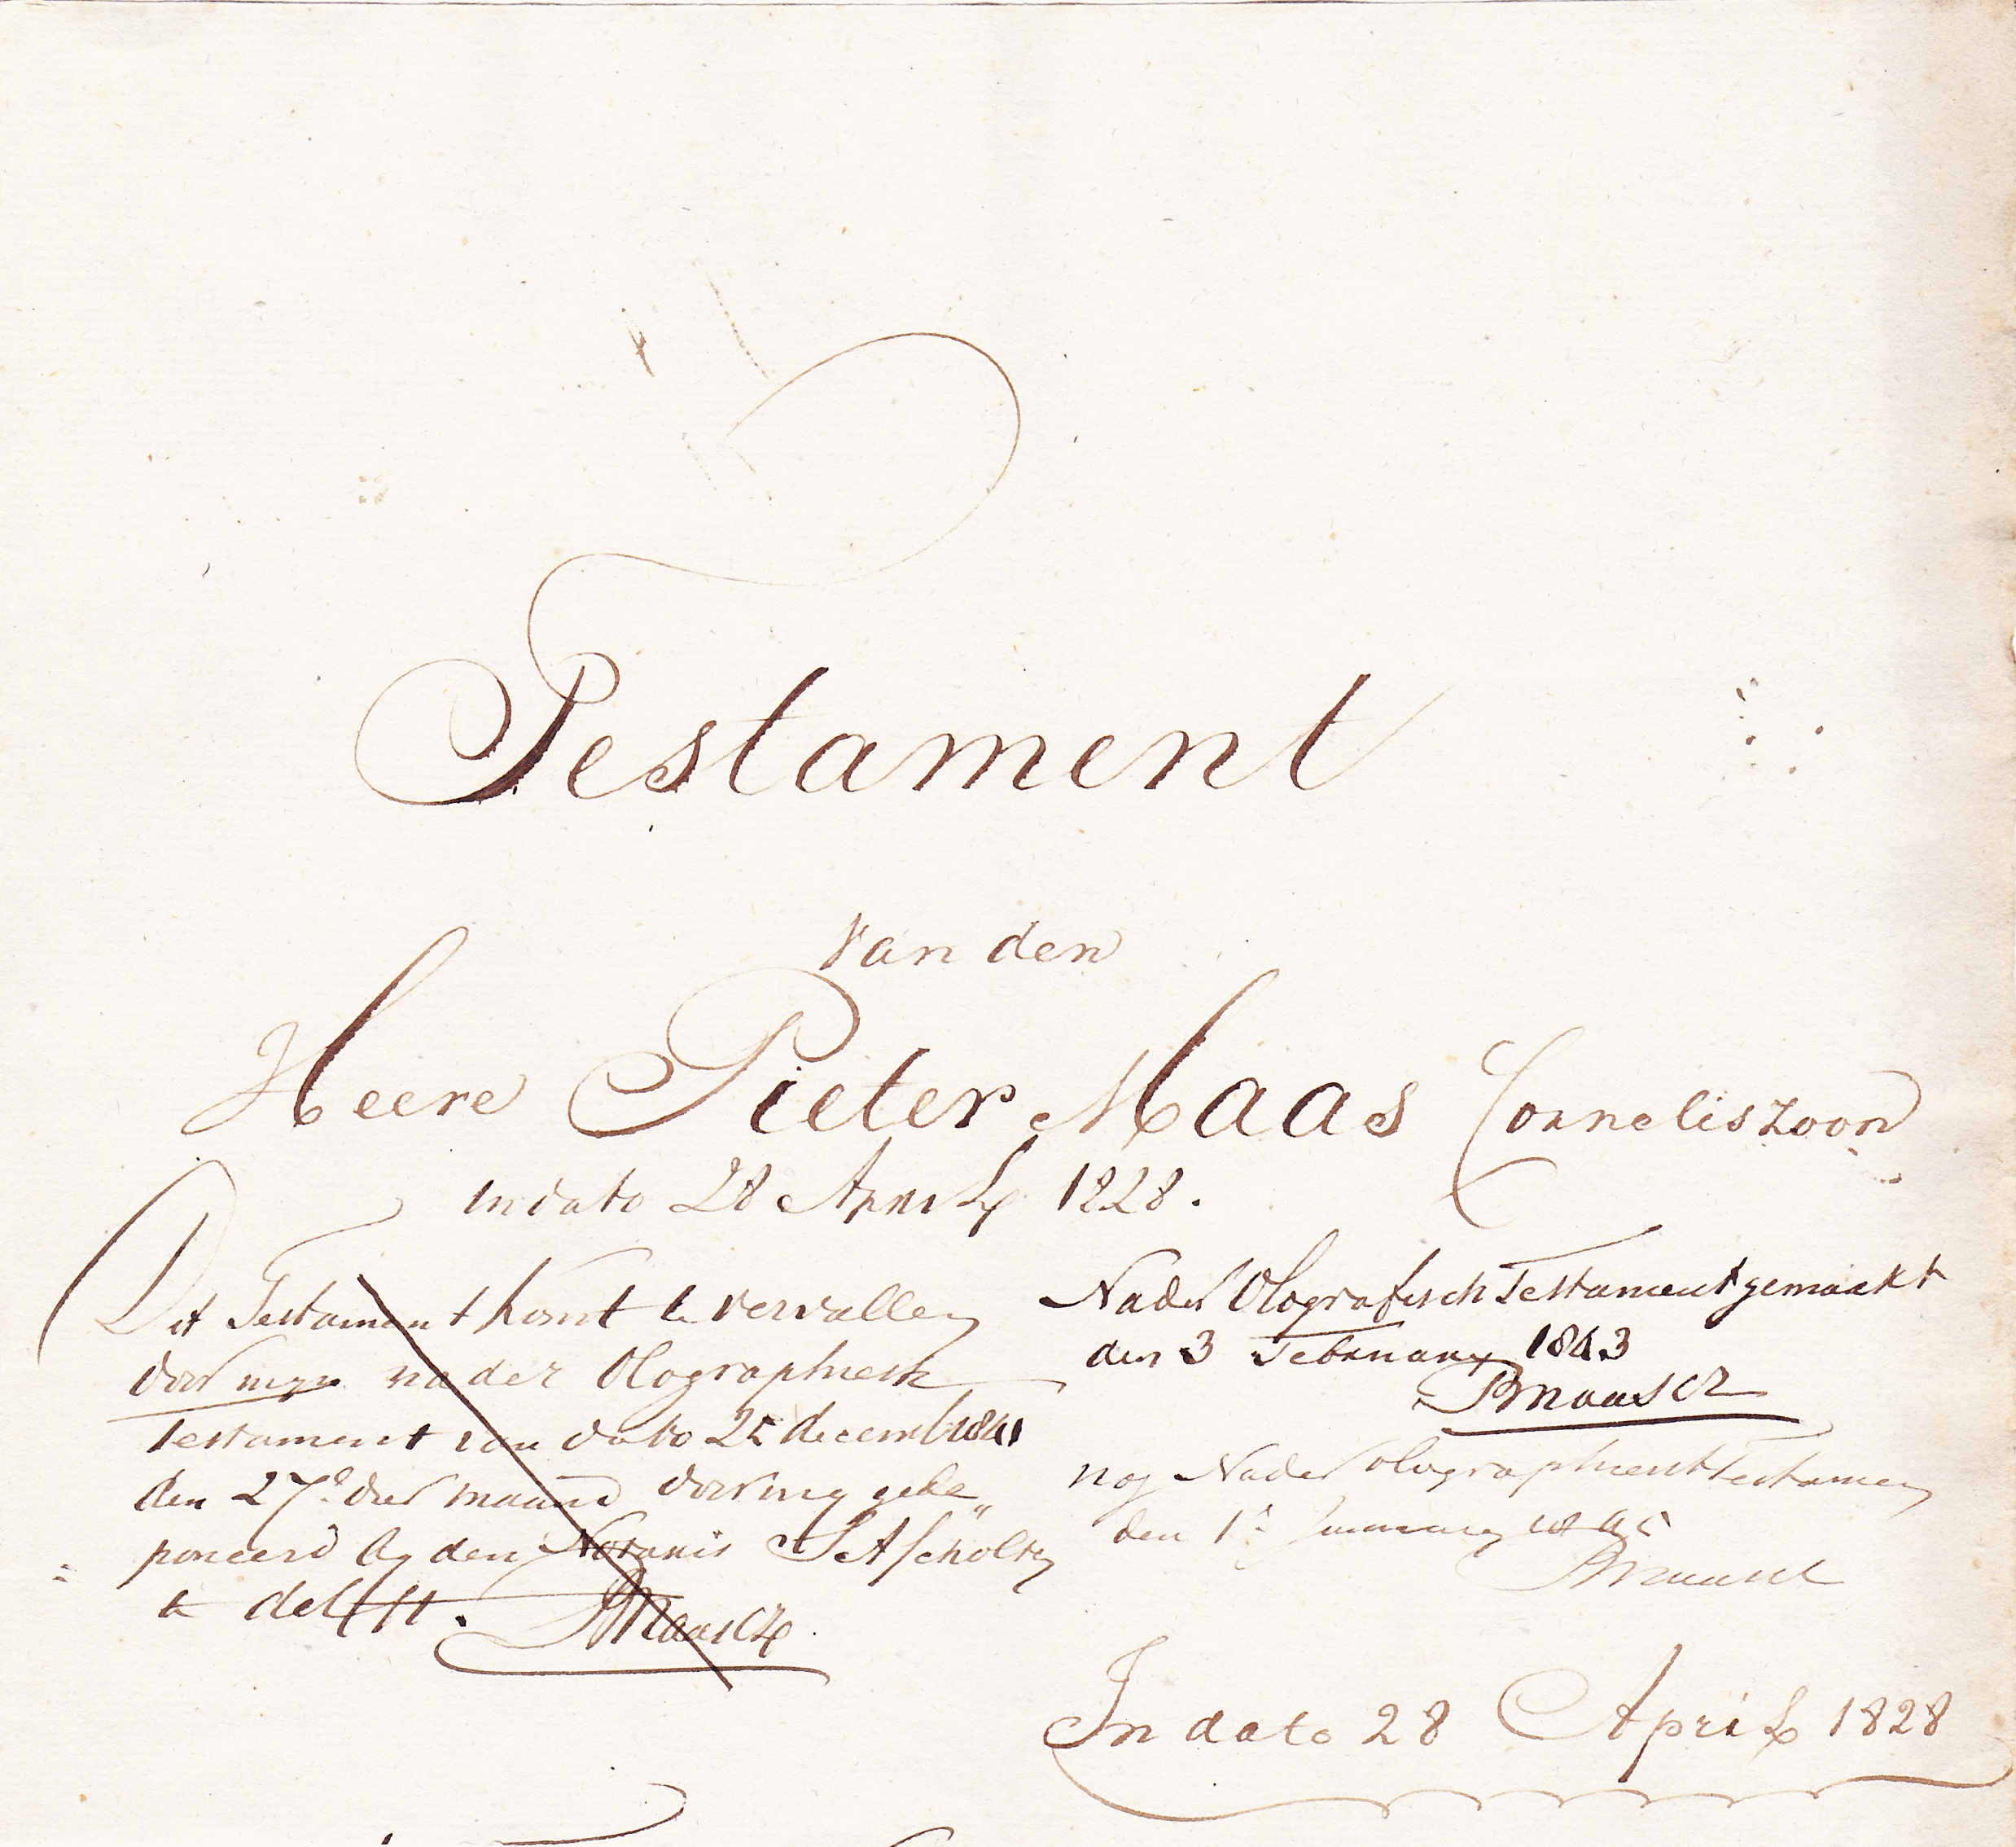 Testament
van den
Heere Pieter Maas Corneliszoon
in dato 28 April 1828.
Dit Testament komt te vervallen
door myn nader Olographiesch
Testament van dato 25 decemb 1841
den 27e dier maand door my gede„
poneerd by den Notaris Scholtz
te delfft. PMaasCz
Nader Olografisch Testament gemaakt
den 3 February 1843
PMaasCz
nog Nader olographiesch Testamen
den 1e January
PMaasCz
In dato 28 April 1828